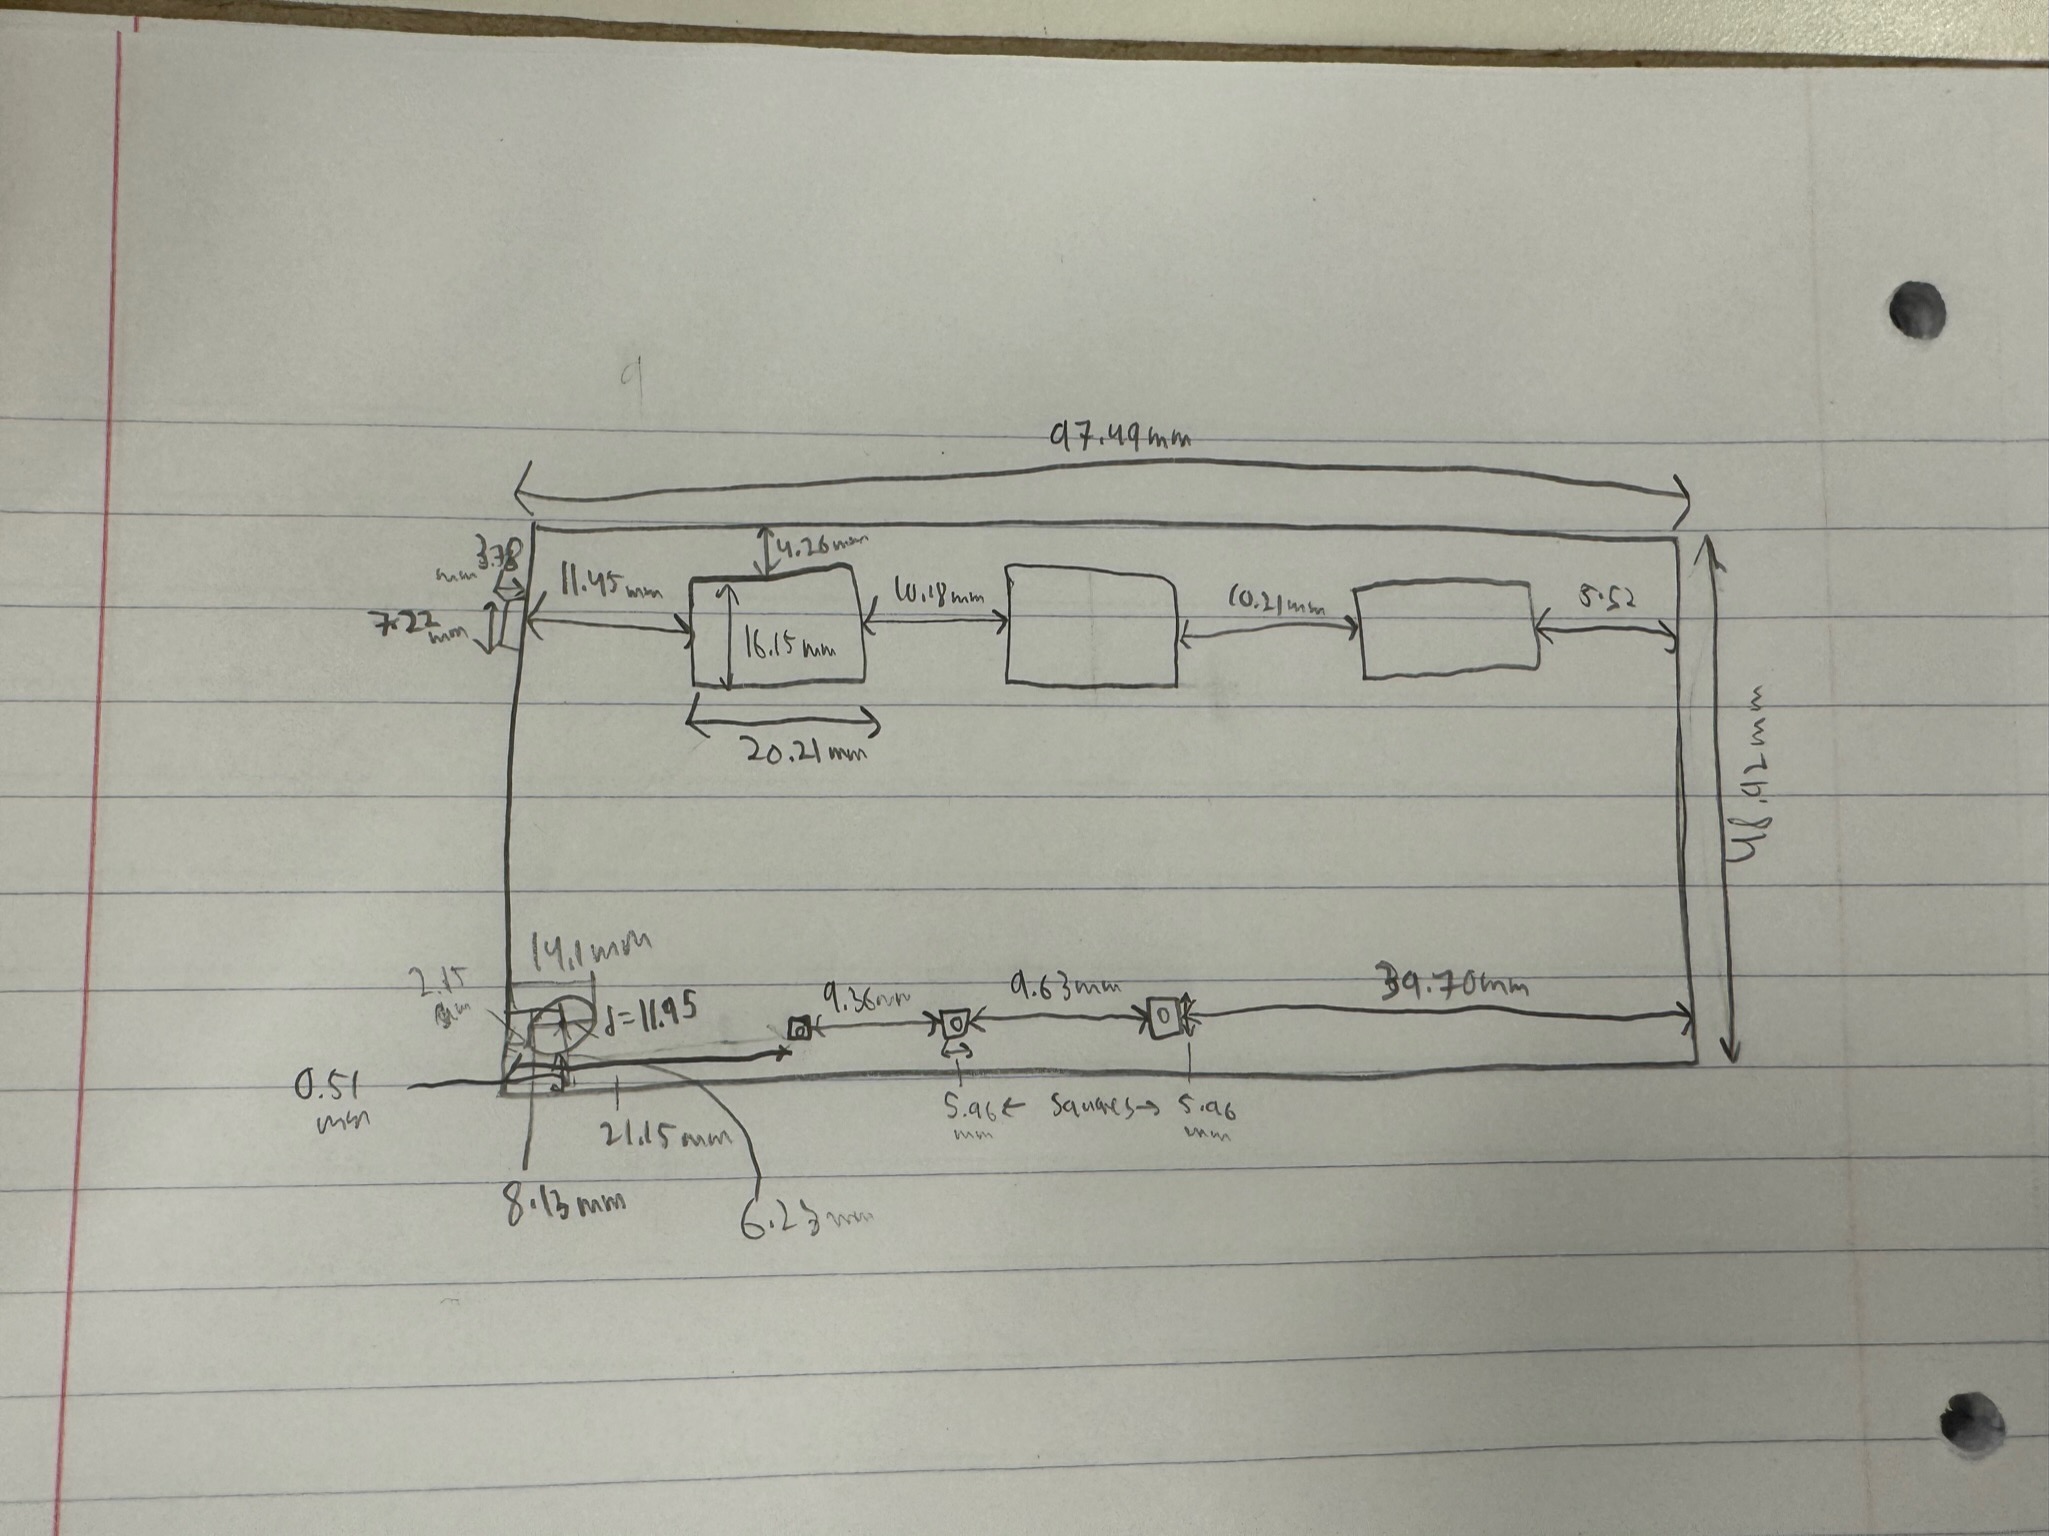 97.49mm
4.26mm
3.78
mm
11.45mm
10.18mm
10.21mm
5.52
7.22
mm
16.15mm
20.21mm
48.92mm
14.1mm
2.15
mm
d=11.95
9.36mm
9.63mm
39.70mm
0.51
mm
21.15mm
5.96 ← squares → 5.96
mm mm
8.13mm
6.23mm